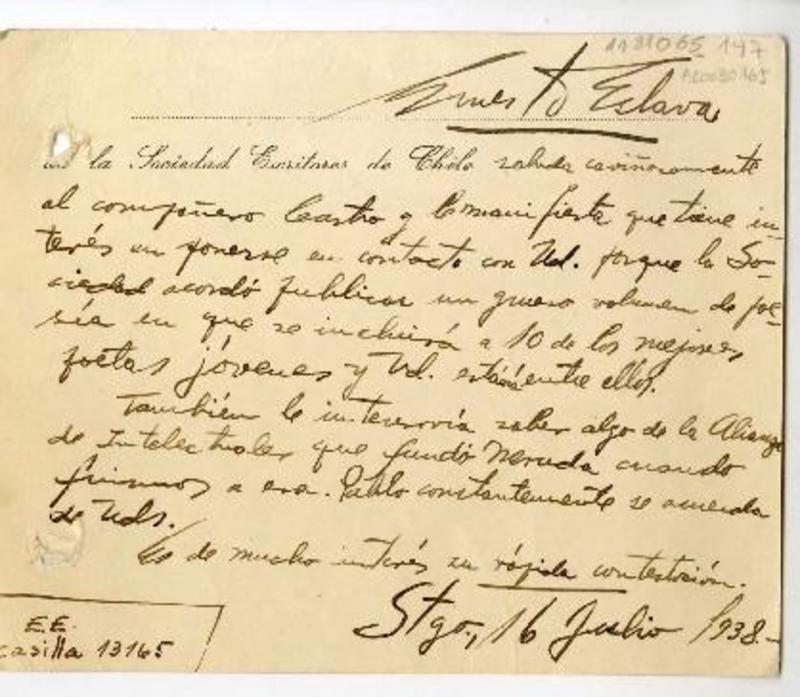 1131065 147
Ernesto Eslava
de la Sociedad Escritores de Chile saluda cariñosamente
al compañero Castro y le manifiesta que tiene in-
terés en ponerse en contacto con Ud. porque la So-
ciedad acordó publicar un grueso volumen de poe-
sía en que se incluirá a 10 de los mejores
poetas jóvenes y Ud. estará entre ellos.
También le interesaría saber algo de la Alianza
de Intelectuales que fundó Neruda cuando
fuimos a esa. Pablo constantemente se acuerda
de Uds.
Es de mucho interés su rápida contestación.
Stgo., 16 Julio 1938.-
E.E.
casilla 13165